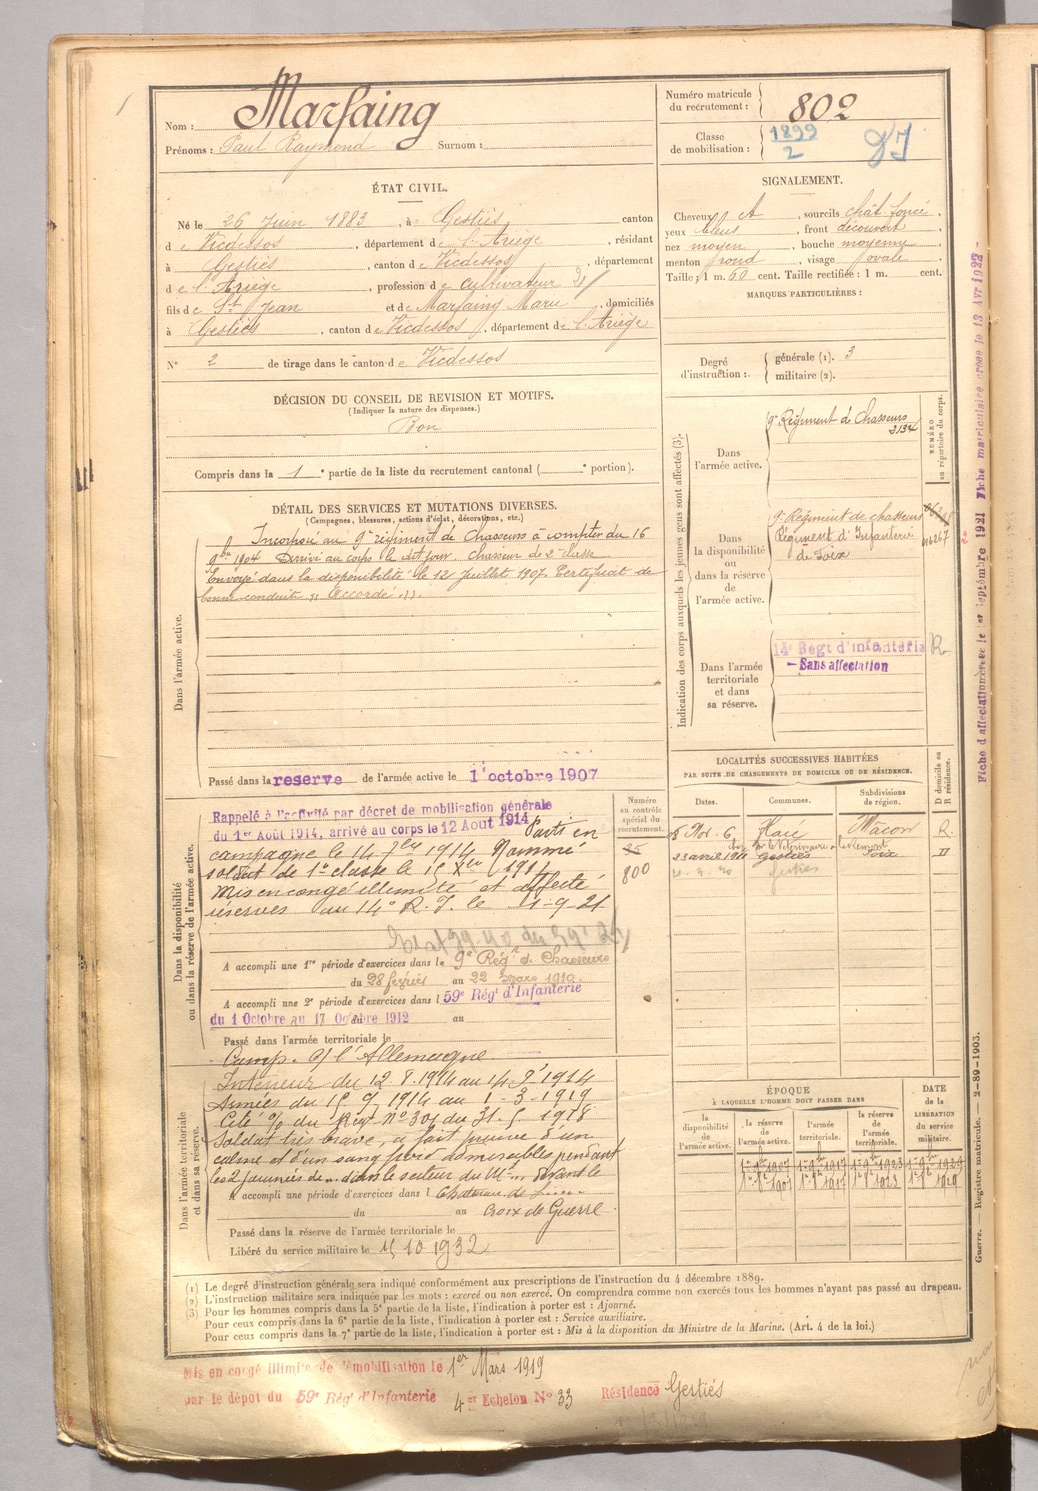 Nom : Marfaing
Prénoms : Paul Raymond Surnom :
Numéro matricule du recrutement : 802
Classe de mobilisation : 1899 / 2
ÉTAT CIVIL.
Né le 26 Juin 1883, à Gestiès canton
de Vicdessos, département de l'Ariège, résidant
à Gestiès, canton de Vicdessos, département
de l'Ariège, profession de cultivateur
fils de St Jean et de Marfaing Marie, domiciliés
à Gestiès, canton de Vicdessos, département de l'Ariège
N° 2 de tirage dans le canton de Vicdessos
SIGNALEMENT.
Cheveux , sourcils chât. foncé,
yeux bleus, front découvert,
nez moyen, bouche moyenne,
menton rond, visage ovale.
Taille : 1 m. 60 cent. Taille rectifiée : 1 m. cent.
MARQUES PARTICULIÈRES :
Degré d'instruction : générale (1). 3
militaire (2).
DÉCISION DU CONSEIL DE REVISION ET MOTIFS.
(Indiquer la nature des dispenses.)
Bon
Compris dans la 1e partie de la liste du recrutement cantonal ( e portion).
DÉTAIL DES SERVICES ET MUTATIONS DIVERSES.
(Campagnes, blessures, actions d'éclat, décorations, etc.)
Dans l'armée active.
Incorporé au 9e régiment de Chasseurs à compter du 16
9bre 1904 Arrivé au corps le dit jour. Chasseur de 2e classe
Envoyé dans la disponibilité le 12 Juillet 1907. Certificat de
bonne conduite "Accordé".
Passé dans la reserve de l'armée active le 1er octobre 1907
Indication des corps auxquels les jeunes gens sont affectés (3).
NUMÉRO au répertoire du corps.
Dans l'armée active.
9e Régiment de Chasseurs
3134
Dans la disponibilité ou dans la réserve de l'armée active.
9e Régiment de chasseurs
Régiment d'Infanterie
de Foix
Dans l'armée territoriale et dans sa réserve.
14e Regt d'infanterie R
Sans affectation
Dans la disponibilité ou dans la réserve de l'armée active.
Numéro au contrôle spécial du recrutement.
25
800
Rappelé à l'activité par décret de mobilisation générale
du 1er Août 1914, arrivé au corps le 12 Août 1914 Parti en
campagne le 14 7bre 1914 Nommé
soldat de 1e classe le 15 Xbre 1917
Mis en congé illimité et affecté
réserves au 14e R.I. le 1-9-21
A accompli une 1re période d'exercices dans le 9e Régt de Chasseurs
du 28 février au 22 mars 1910.
A accompli une 2e période d'exercices dans l 59e Régt d'Infanterie
du 1 Octobre au 17 Octobre 1912 au
Passé dans l'armée territoriale le
LOCALITÉS SUCCESSIVES HABITÉES
PAR SUITE DE CHANGEMENTS DE DOMICILE OU DE RÉSIDENCE.
Dates. Communes. Subdivisions de région. D domicile ou R résidence.
8 Nov. 6 Mâcon R.
23 avril 1911 Gestiès Foix D
Dans l'armée territoriale et dans sa réserve.
Camp. c/ l'Allemagne
Intérieur du 12.8.1914 au 14.9.1914
Armées du 15-9-1914 au 1-3-1919
Cité % du Régt N° 301 du 31.5.1918
Soldat très brave, a fait preuve d'un
calme et d'un sang froid admirables pendant
les 2 journées de ... dans le secteur du M... devant le
A accompli une période d'exercices dans l Chateau de
du au Croix de Guerre.
Passé dans la réserve de l'armée territoriale le
Libéré du service militaire le 15 10 1932
ÉPOQUE
À LAQUELLE L'HOMME DOIT PASSER DANS
la disponibilité de l'armée active. la réserve de l'armée active. l'armée territoriale. la réserve de l'armée territoriale. DATE de la LIBÉRATION du service militaire.
1er 9bre 1907 1er 9bre 1917 1er 9bre 1923 1er 9bre 1929
1er 8bre 1907 1er 8bre 1917 1er 8bre 1923 1er 8bre 1929
(1) Le degré d'instruction générale sera indiqué conformément aux prescriptions de l'instruction du 4 décembre 1889.
(2) L'instruction militaire sera indiquée par les mots : exercé ou non exercé. On comprendra comme non exercés tous les hommes n'ayant pas passé au drapeau.
(3) Pour les hommes compris dans la 5e partie de la liste, l'indication à porter est : Ajourné.
Pour ceux compris dans la 6e partie de la liste, l'indication à porter est : Service auxiliaire.
Pour ceux compris dans la 7e partie de la liste, l'indication à porter est : Mis à la disposition du Ministre de la Marine. (Art. 4 de la loi.)
Mis en congé illimité de démobilisation le 1er Mars 1919
par le dépôt du 59e Régt d'Infanterie 4e Echelon N° 33 Résidence Gestiés
Fiche d'affectation créée le 1er Septembre 1921 Fiche matriculaire créée le 13 Avr 1922
Guerre. — Registre matricule. — 2-89-1903.